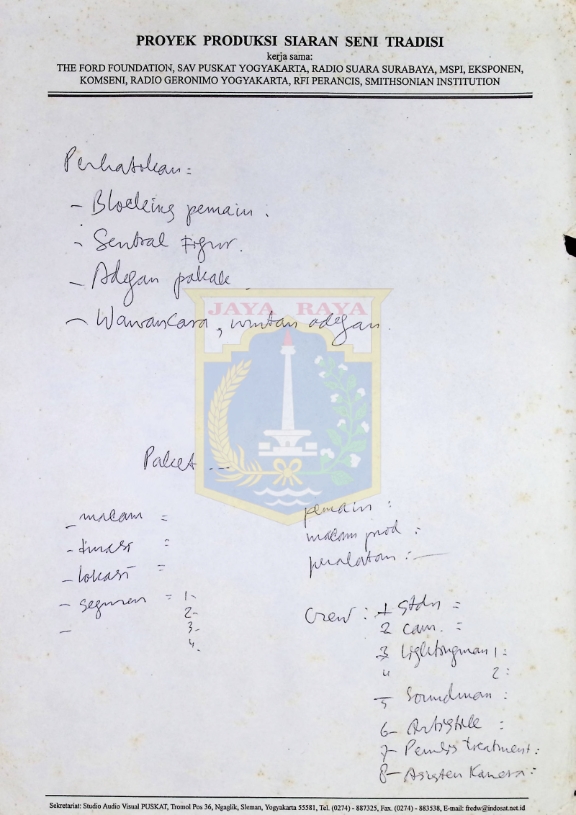 PROYEK PRODUKSI SIARAN SENI TRADISI
kerja sama:
THE FORD FOUNDATION, SAV PUSKAT YOGYAKARTA, RADIO SUARA SURABAYA, MSPI, EKSPONEN,
KOMSENI, RADIO GERONIMO YOGYAKARTA, RFI PERANCIS, SMITHSONIAN INSTITUTION
Perhatikan:
- Blocking pemain.
- Sentral Figur.
- Adegan
- Wawancara, urutan adegan.
JAYA RAYA
Paket ...
- macam :
- durasi :
- lokasi :
- segmen : 1-
2-
3-
4.
-
pemain :
macam prod :
peralatan :
Crew : 1 Stdr :
2 Cam. :
3 Lightingman 1:
4 2:
5 Soundman :
6- Artistik :
7- Penulis treatment :
8- Asisten Kamera :
Sekretariat: Studio Audio Visual PUSKAT, Tromol Pos 36, Ngaglik, Sleman, Yogyakarta 55581, Tel. (0274) - 887325, Fax. (0274) - 883538, E-mail: fredw@indosat.net.id